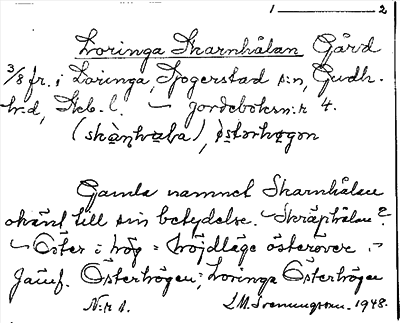 1 — 2
Loringa Skarnhålan Gård
3/8 fr. i Loringa, Fjogerstad s:n, Gudh.
hr:d, Skb. l. — Jordeboksn:r 4.
(skàṇhɷba), östərhøgən
Gamla namnet Skarnhålan
okänt till sin betydelse. Skräphålan?
— Öster i hög = höjdläge österöver i
Jämf. Österhögen; Loringa Österhögen
N:r 1. L.M. Svenungsson. 1948.